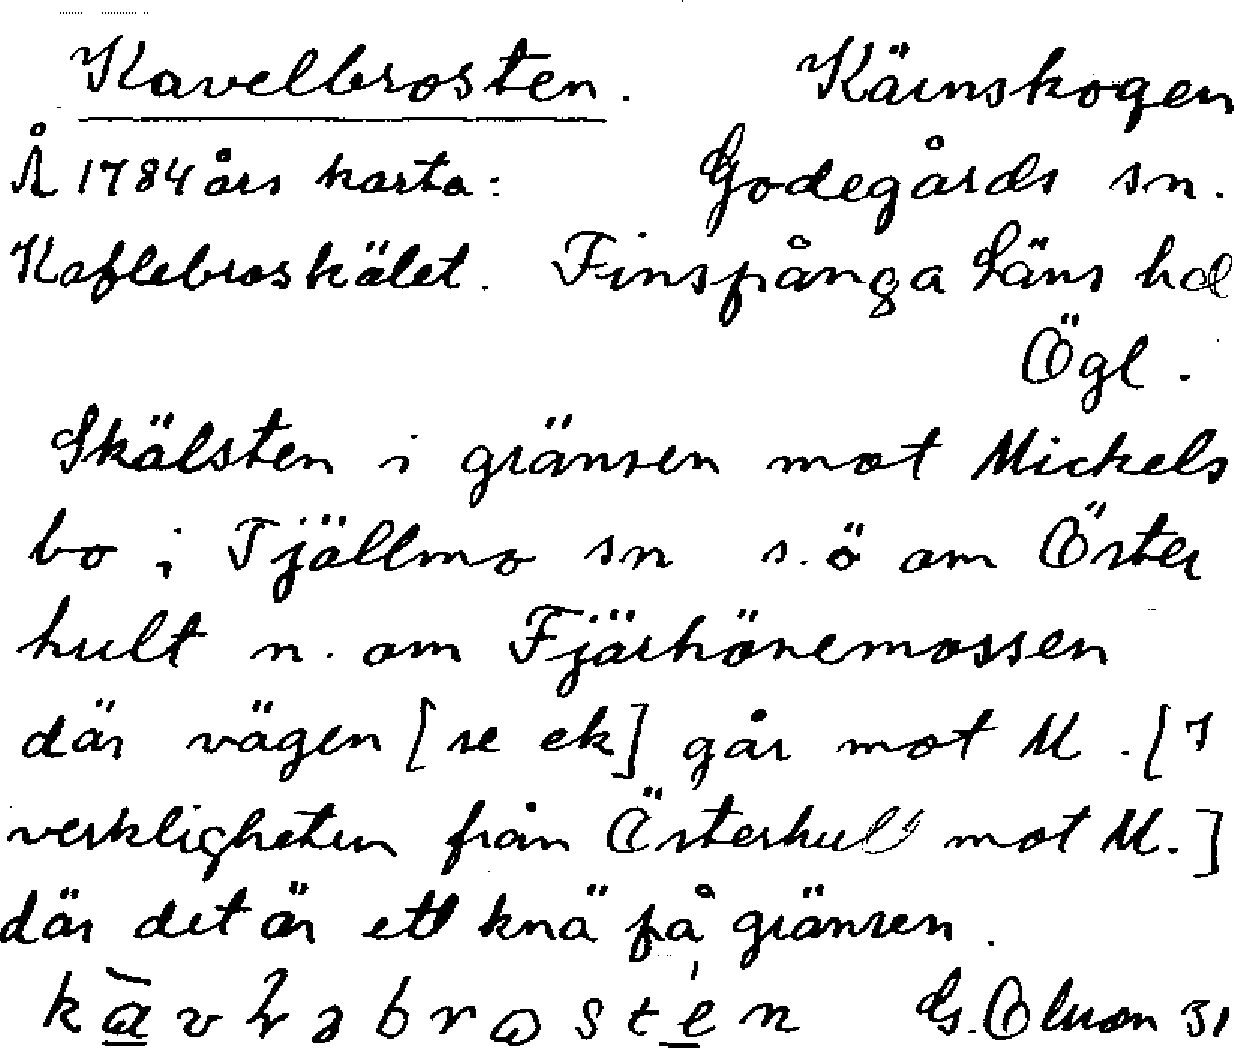 Kavelbrosten. Kärnskogen
Å 1784 års karta: Godegårds sn.
Kaflebroskälet. Finspånga Läns hd
Ögl.
Skälsten i gränsen mot Mickels
bo i Tjällmo sn s.ö om Öster
hult n. om Fjärhönemossen
där vägen [se ek] går mot M. [I
verkligheten från Österhult mot M.]
där det är ett knä på gränsen.
G. Olsson 31